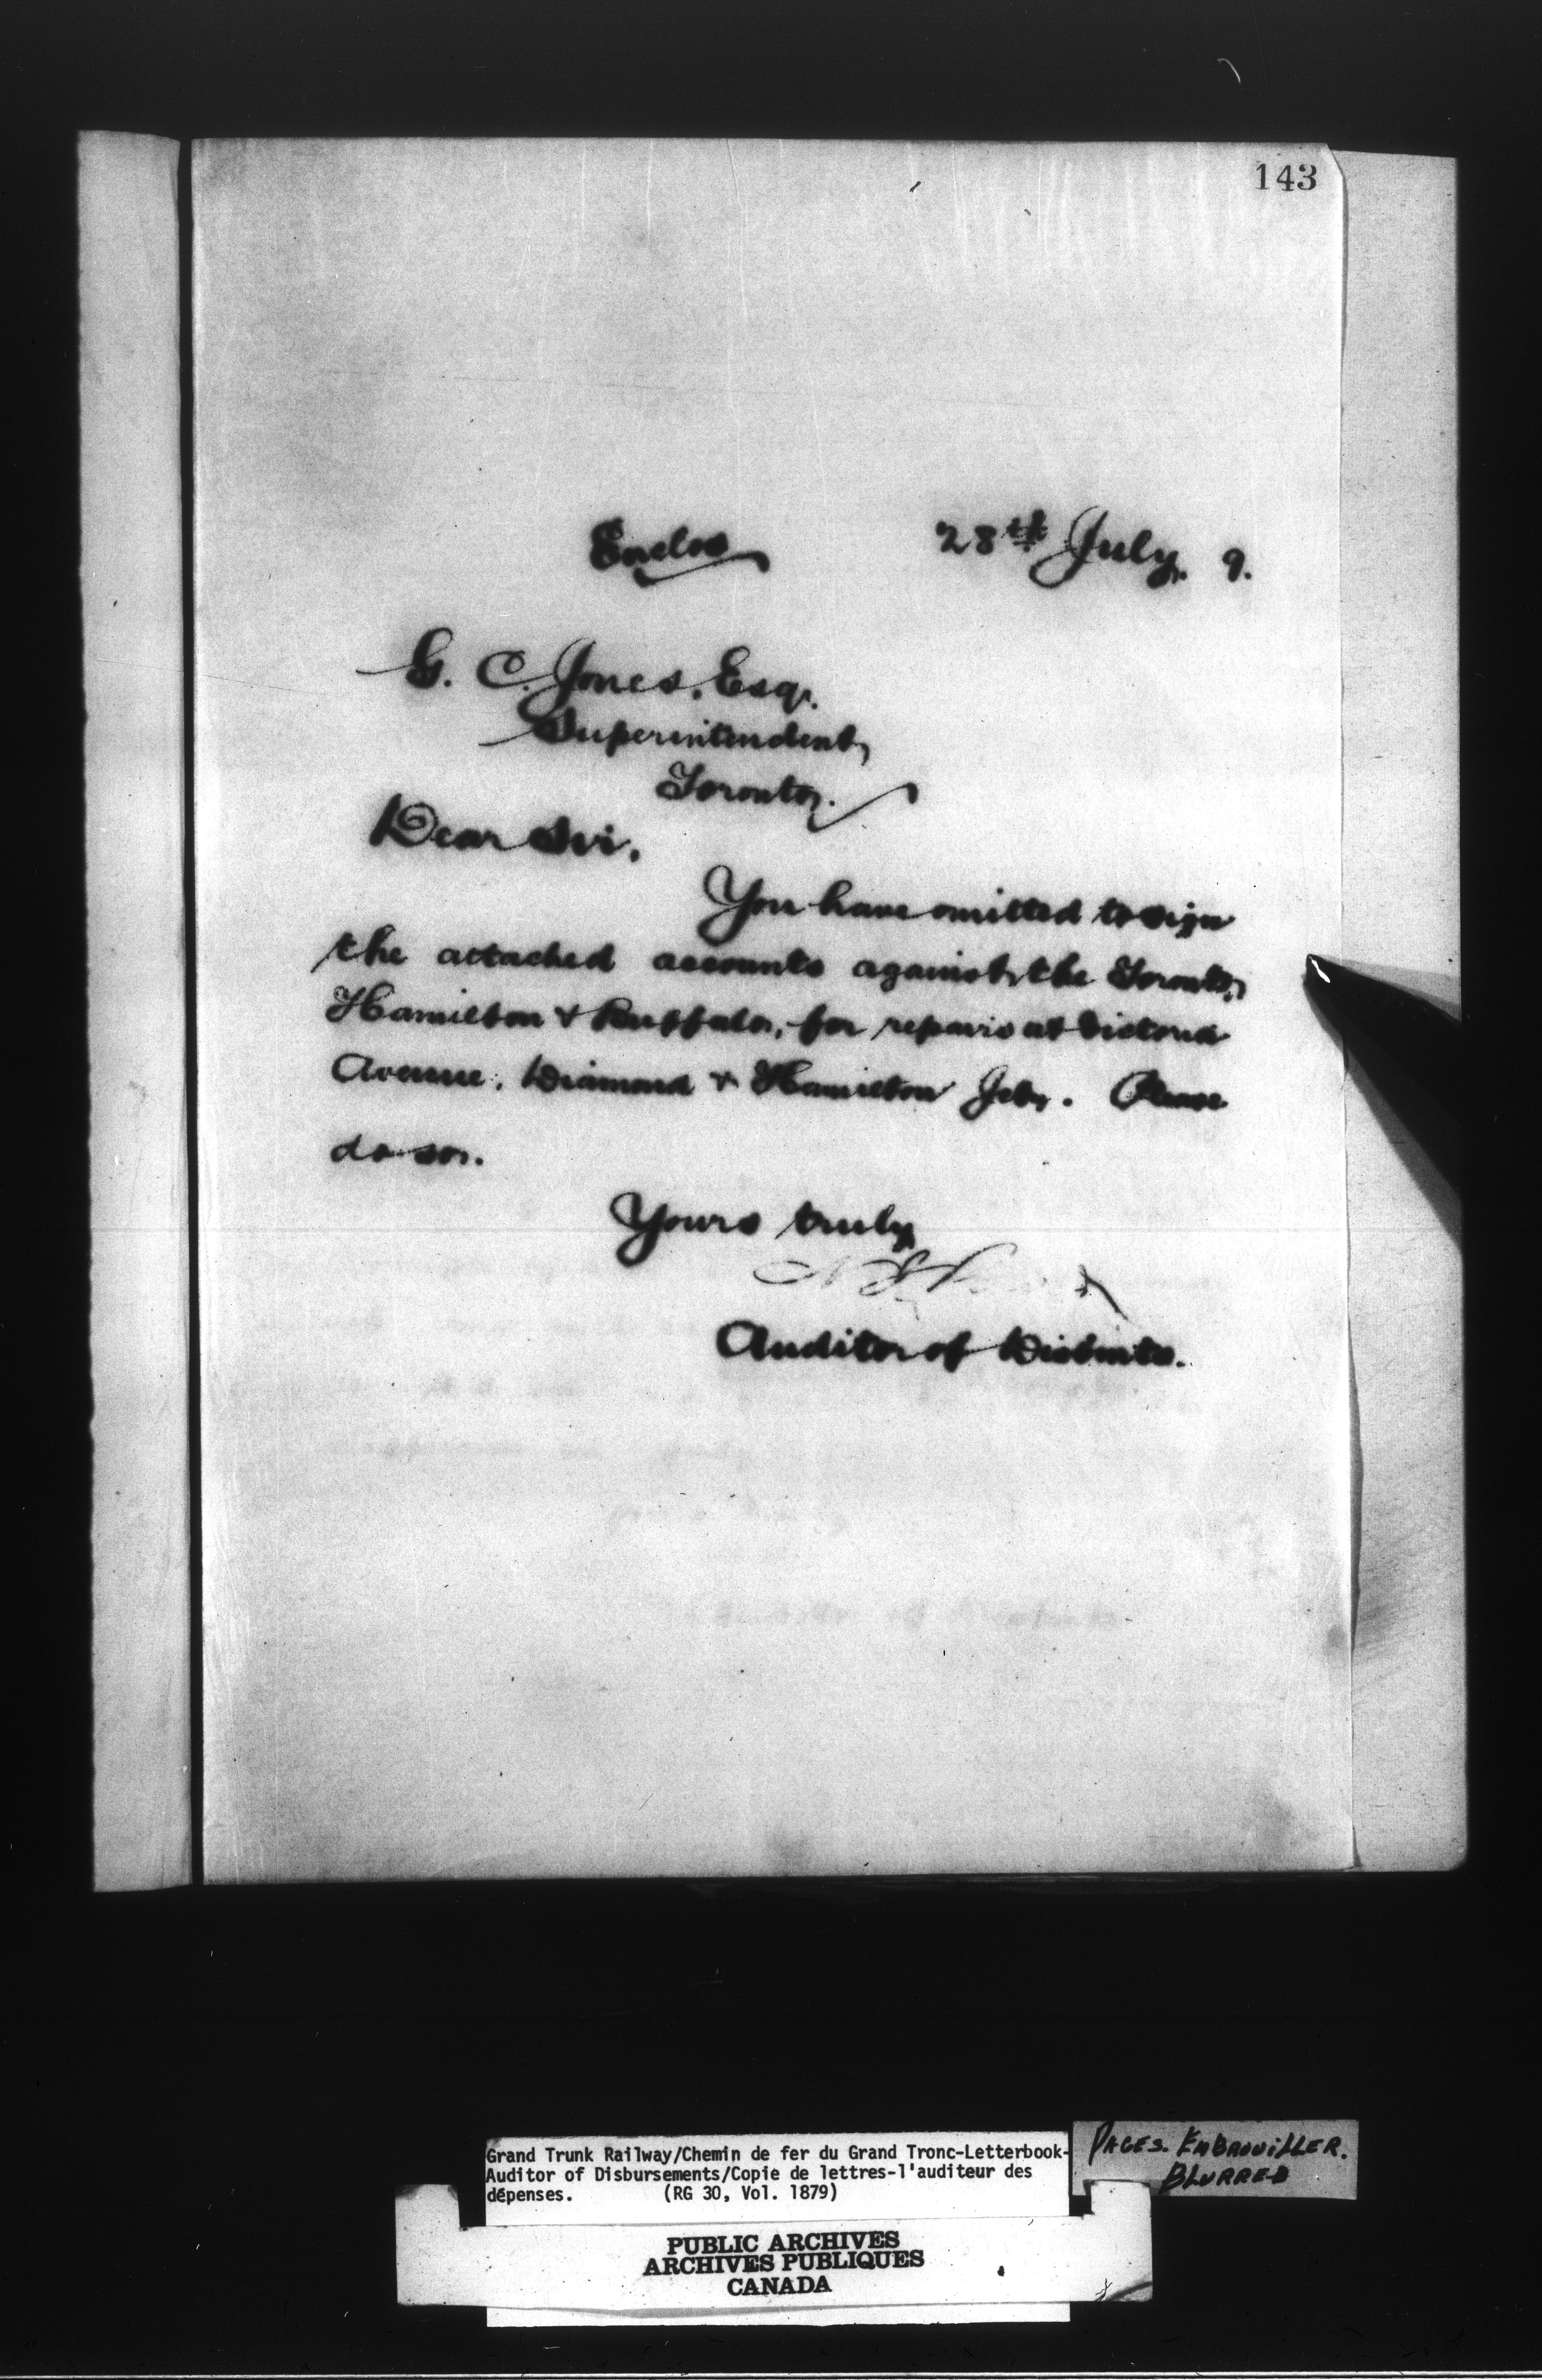 143
Enclos 28th July. 9.
G. C. Jones, Esq.
Superintendent,
Toronto.
Dear Sir,
You have omitted to sign
the attached accounts against the Toronto,
Hamilton & Buffalo, for repairs at Victoria
Avenue, Diamond & Hamilton Jctn. Please
do so.
Yours truly
Auditor of Disbmts.
Grand Trunk Railway/Chemin de fer du Grand Tronc-Letterbook-
Auditor of Disbursements/Copie de lettres-l'auditeur des
dépenses. (RG 30, Vol. 1879)
PAGES. EMBROUILLER.
BLURRED
PUBLIC ARCHIVES
ARCHIVES PUBLIQUES
CANADA